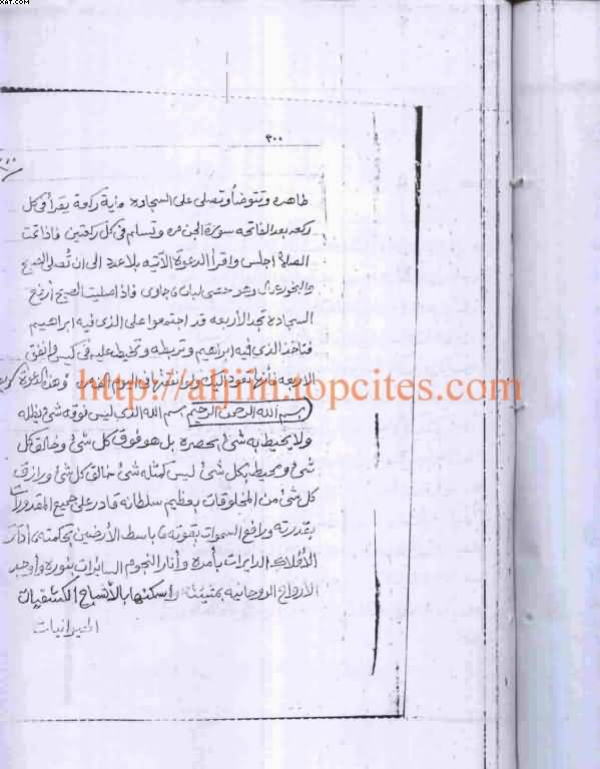 XAT.COM
٣٠٠
طاهره وتتوضأ وتصلى على السجاده مأية ركعة يقرأ فى كل
ركعه بعد الفاتحه سورة الجن مره وتسلم فى كل ركعتين فاذا تمت
الصلاة اجلس واقرأ الدعوة الآتيه بلا عدد الى ان تُصلى الصبح
والبخور عمال وهو حصى لبان وجاوى فاذا صليت الصبح أرفع
السجاده تجد الأربعه قد اجتمعوا على الذى فيه ابراهيم
فتأخذ الذى فيه ابراهيم وتربطه وتخيط عليه فى كيس وانفق
الاربعه فأنها تعود اليك ولو انفقتها فى اليوم وهذه الدعوة
http://aljiin.topcites.com
بسم الله الرحمن الرحيم بسم الله الذى ليس فوقه شئ يظله
ولا يحيط به شئ يحصره بل هو فوق كل شئ وخالق كل
شئ ومحيط بكل شئ ليس كمثله شئ خالق كل شئ ورازق
كل شئ من المخلوقات بعظيم سلطانه قادر على جميع المقدورات
بقدرته ورافع السموات بقوته باسط الأرضين بحكمته أدار
الأفلاك الدايرات بأمره وأنار النجوم السايرات بنوره وأوجد
الأرواح الروحانيه بمشيئته واسكنها بالأشباح الكثيفيات